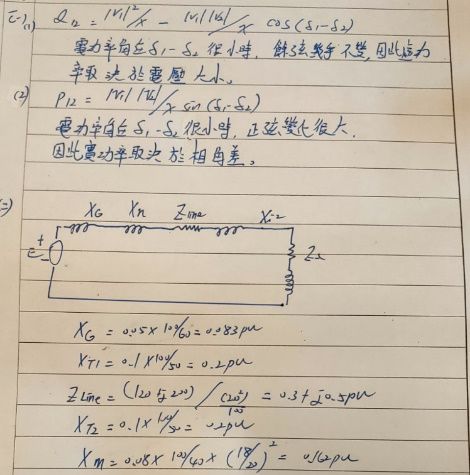 (一)(1) Q12 = |V1|²/X - |V1||V2|/X cos(δ1-δ2)
電功率角在 δ1-δ2 很小時, 餘弦幾乎不變, 因此虛功
率取決於電壓大小。
(2) P12 = |V1||V2|/X sin(δ1-δ2)
電功率角在 δ1-δ2 很小時, 正弦變化很大,
因此實功率取決於相角差。
(二)
XG Xn Zline
E + -
XG = 0.05 × 100/60 = 0.083 pu
XT1 = 0.1 × 100/50 = 0.2 pu
ZLine = (120 + j200) / (200²)/100 = 0.3 + j0.5 pu
XT2 = 0.1 × 100/50 = 0.2 pu
Xm = 0.08 × 100/40 × (18/20)² = 0.162 pu